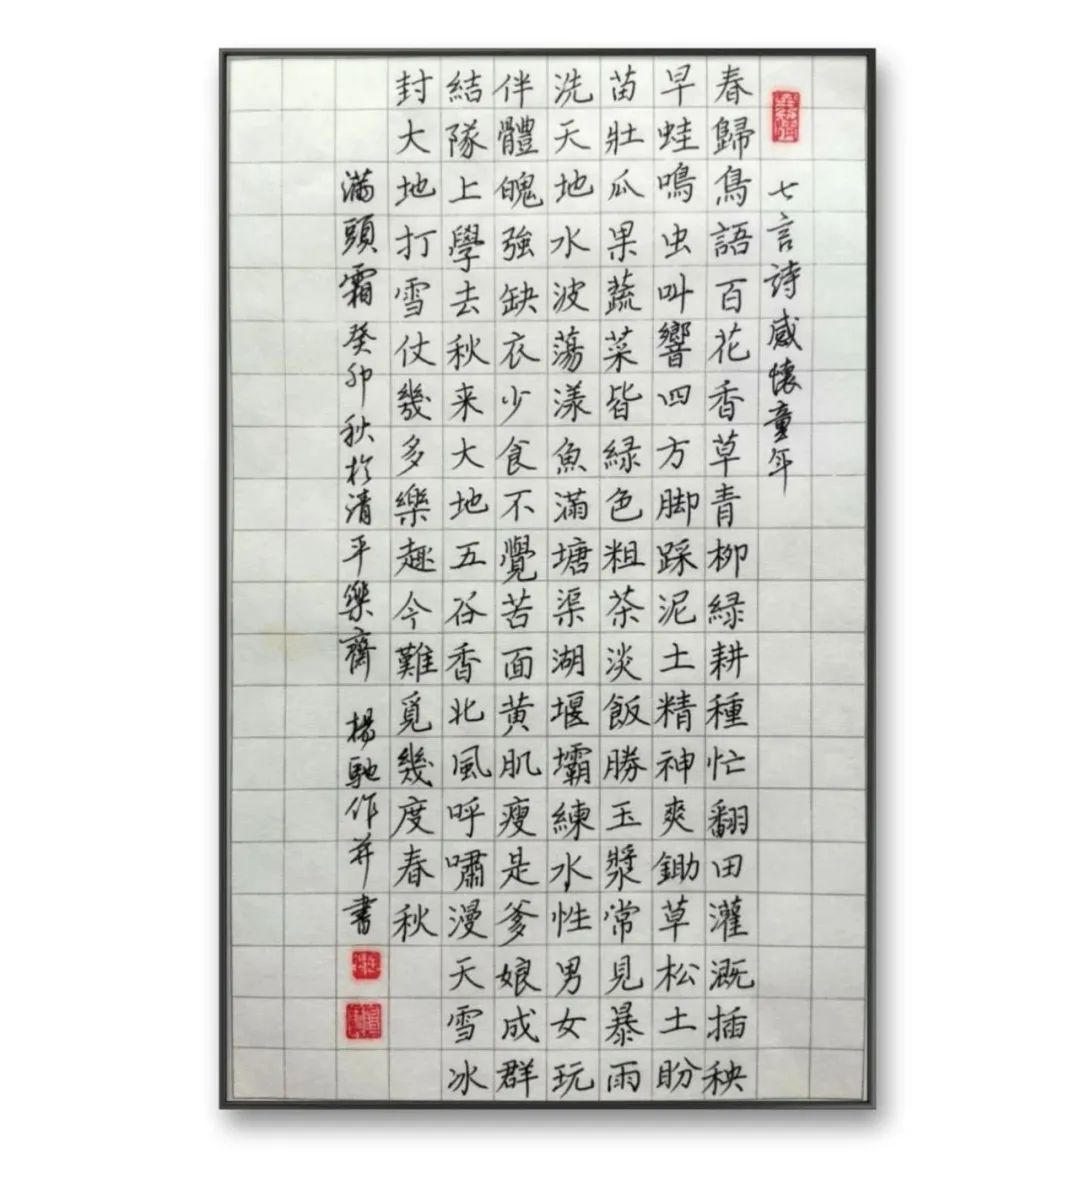 七言詩感懷童年
春歸鳥語百花香草青柳緑耕種忙翻田灌溉插秧
早蛙鳴虫叫響四方脚踩泥土精神爽鋤草松土盼
苗壯瓜果蔬菜皆緑色粗茶淡飯勝玉漿常見暴雨
洗天地水波蕩漾魚滿塘渠湖堰壩練水性男女玩
伴體魄強缺衣少食不覺苦面黄肌瘦是爹娘成群
結隊上學去秋来大地五谷香北風呼嘯漫天雪冰
封大地打雪仗幾多樂趣今難覓幾度春秋
滿頭霜癸卯秋於清平樂齋 楊馳作并書